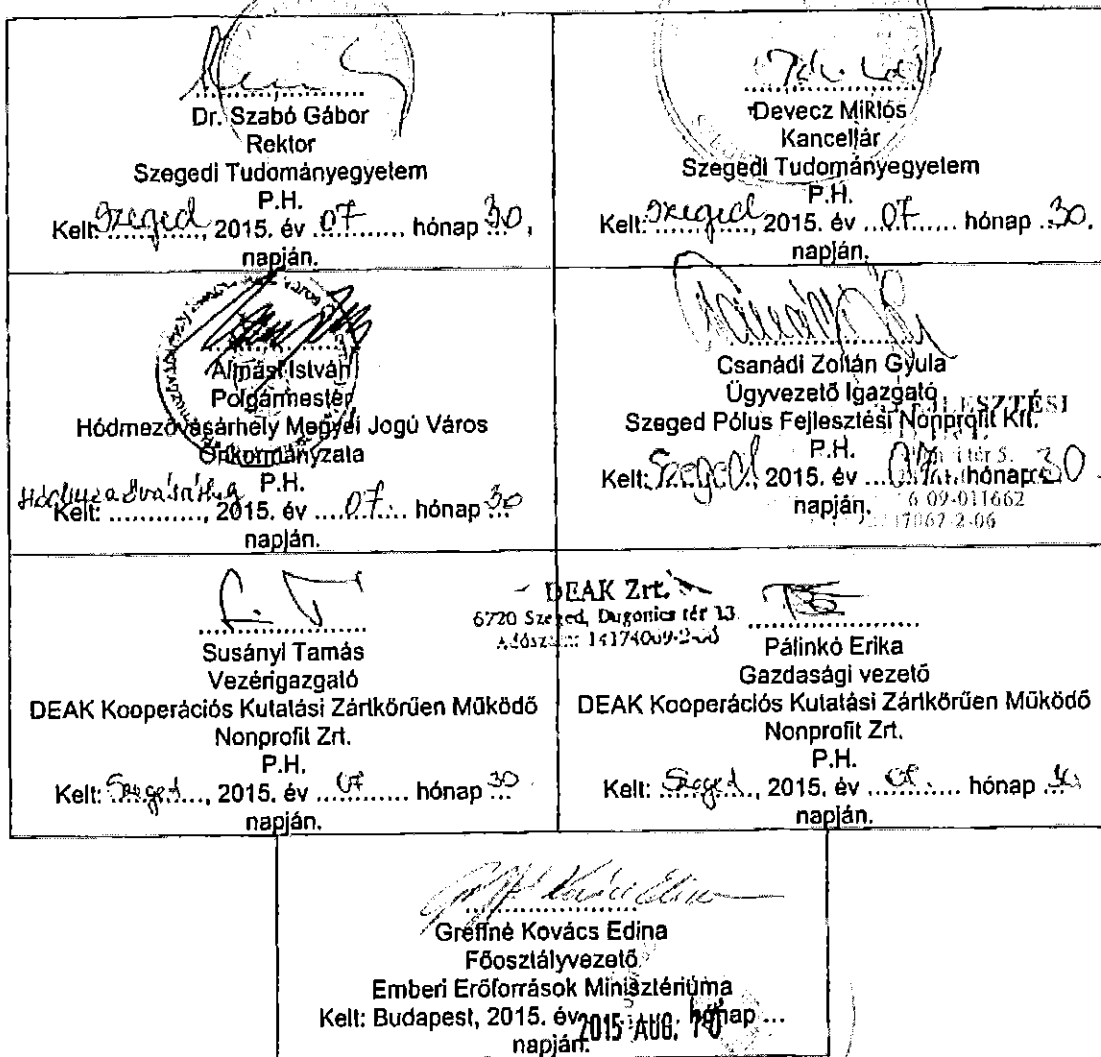 Dr. Szabó Gábor
Rektor
Szegedi Tudományegyetem
P.H.
Kelt: Szeged, 2015. év 07 hónap 30.
napján.
Devecz Miklós
Kancellár
Szegedi Tudományegyetem
P.H.
Kelt: Szeged, 2015. év 07 hónap 30.
napján.
Almási István
Polgármester
Hódmezővásárhely Megyei Jogú Város
Önkormányzata
P.H.
Kelt: Hódmezővásárhely, 2015. év 07. hónap 30
napján.
Csanádi Zoltán Gyula
Ügyvezető Igazgató
Szeged Pólus Fejlesztési Nonprofit Kft.
P.H.
Kelt: Szeged, 2015. év 07. hónap 30.
napján.
6 09-011662
Susányi Tamás
Vezérigazgató
DEAK Kooperációs Kutatási Zártkörűen Működő
Nonprofit Zrt.
P.H.
Kelt: Szeged, 2015. év 07 hónap 30.
napján.
DEAK Zrt.
6720 Szeged, Dugonics tér 13.
Adószám: 14174069-2-06
Pálinkó Erika
Gazdasági vezető
DEAK Kooperációs Kutatási Zártkörűen Működő
Nonprofit Zrt.
P.H.
Kelt: Szeged, 2015. év 07. hónap 30
napján.
Greffné Kovács Edina
Főosztályvezető
Emberi Erőforrások Minisztériuma
Kelt: Budapest, 2015. év hónap ...
2015 AUG.
napján.